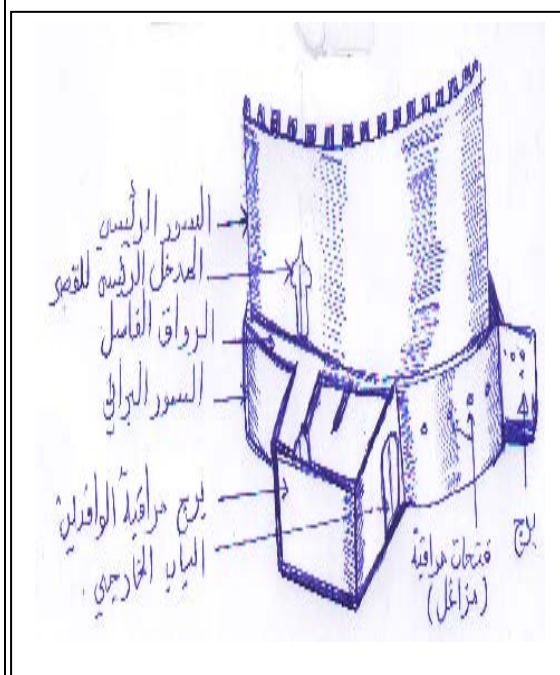 السور الرئيسي
المدخل الرئيسي للقصر
الرواق الفاصل
السور البراني
برج مراقبة الوافدين
الباب الخارجي
فتحات مراقبة
(مزاغل)
برج